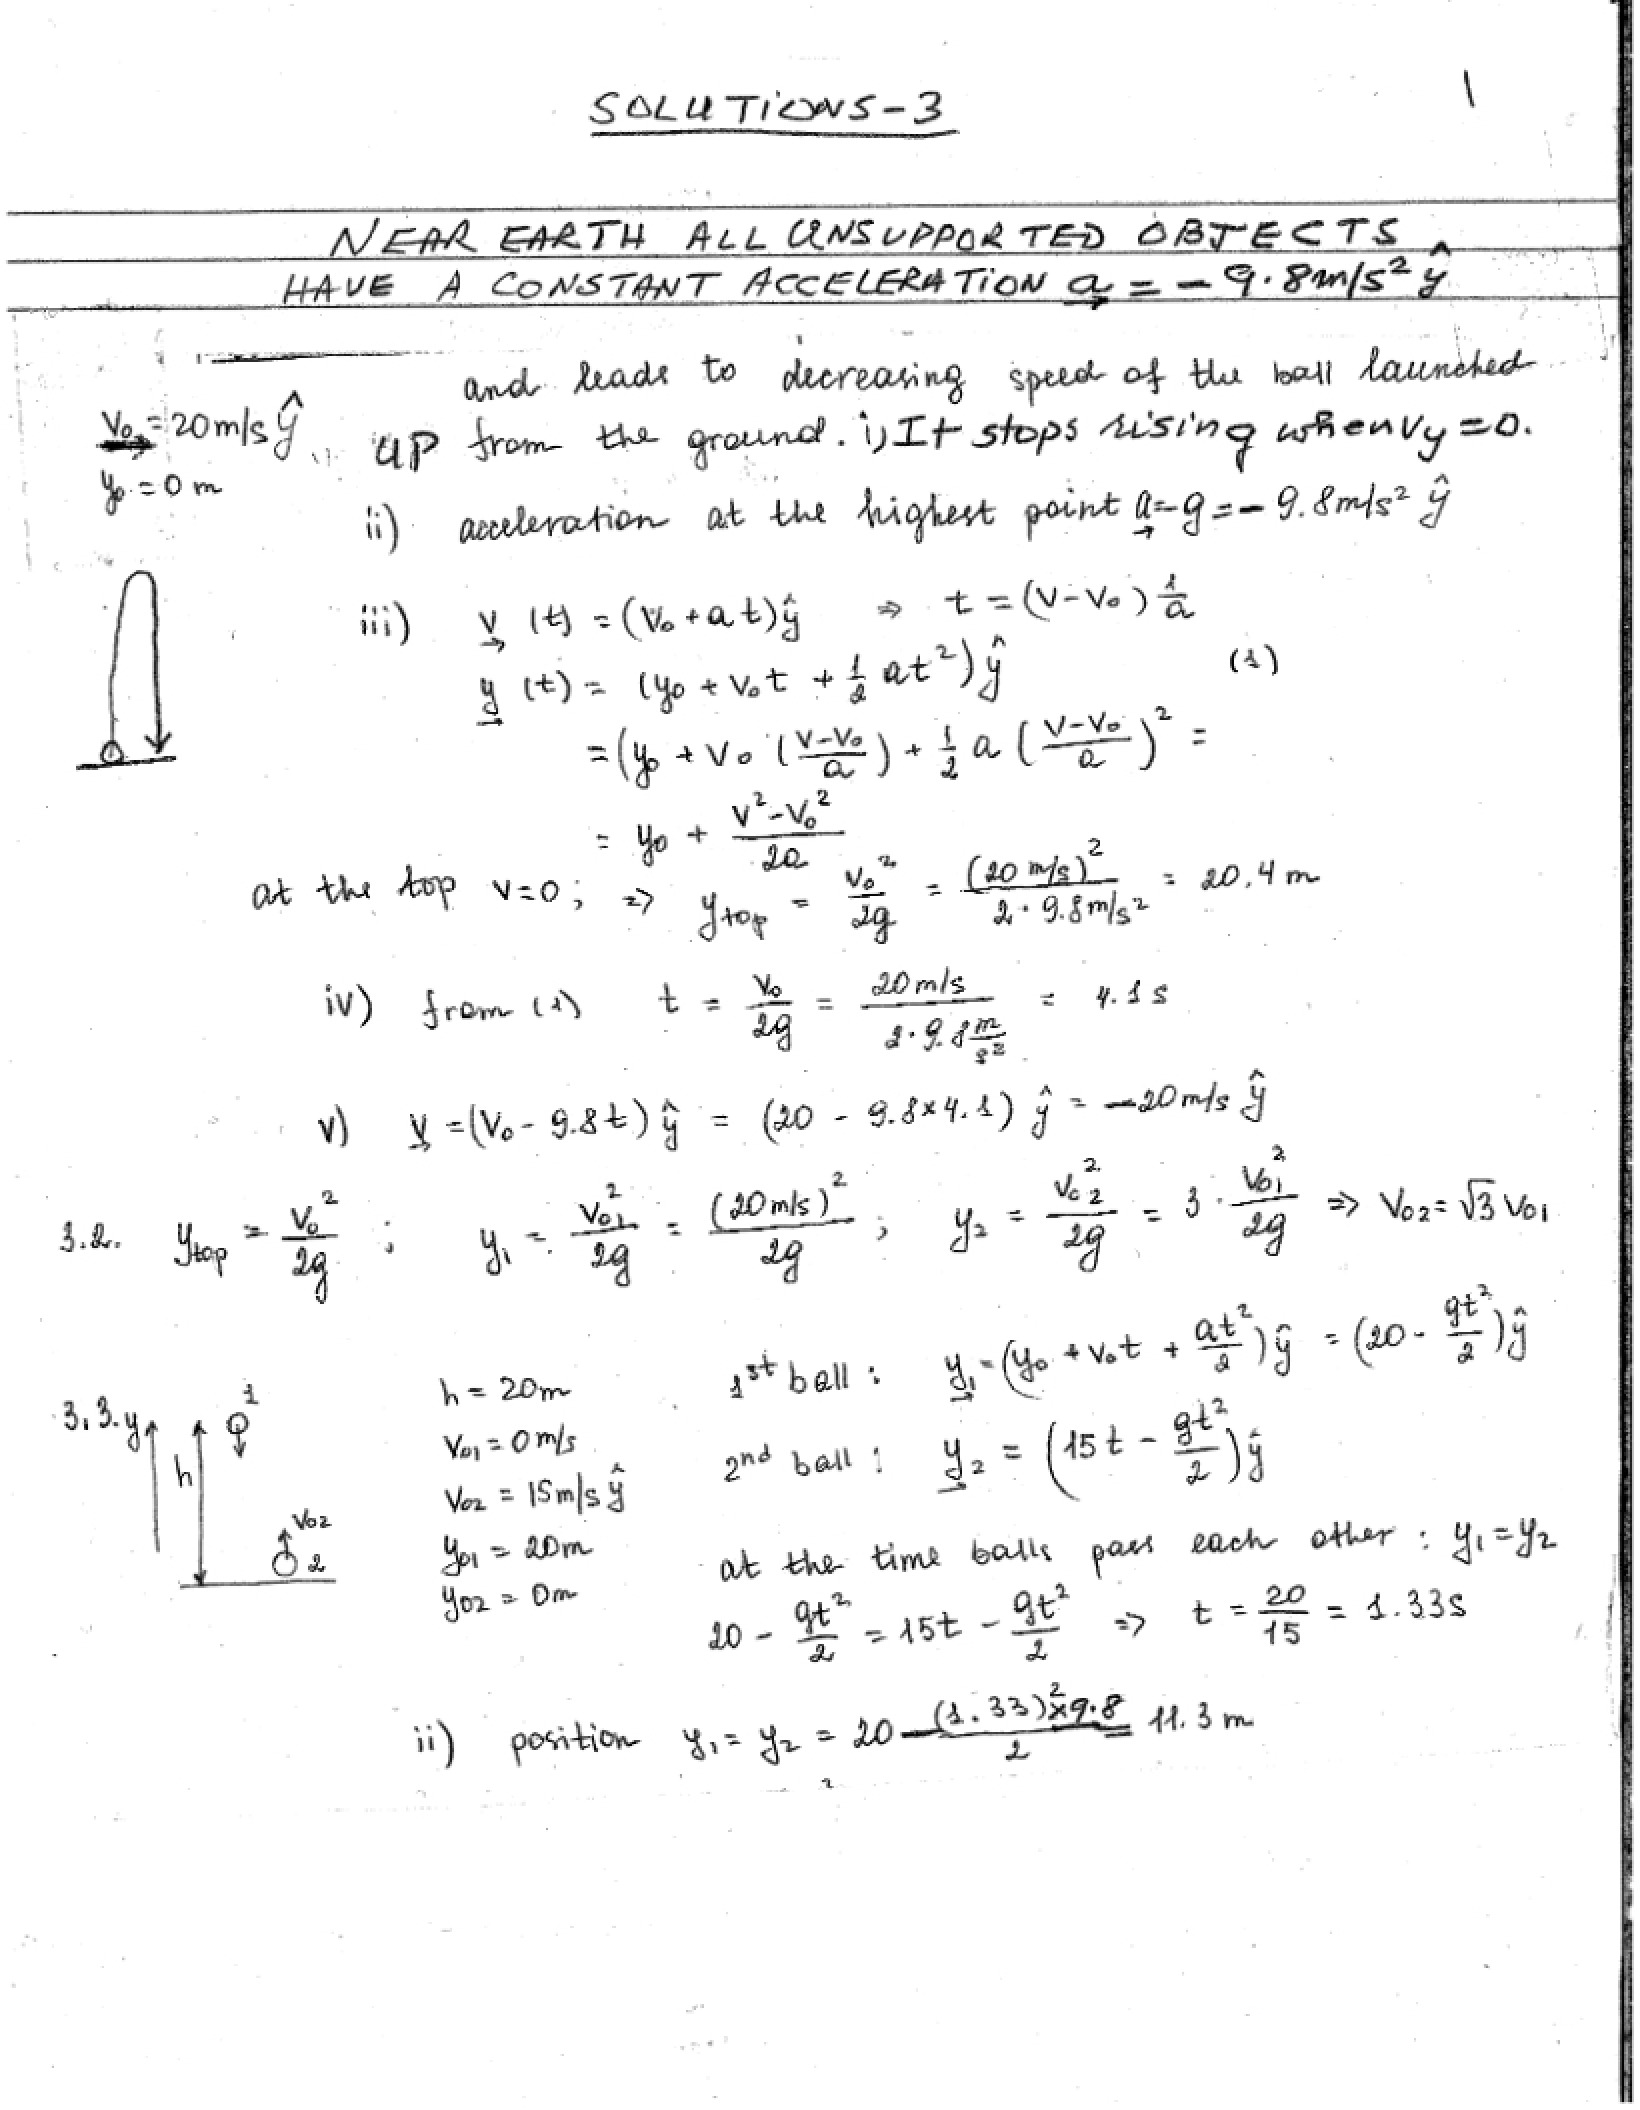 1
SOLUTIONS-3
NEAR EARTH ALL UNSUPPORTED OBJECTS
HAVE A CONSTANT ACCELERATION a = - 9.8m/s² ŷ
and leads to decreasing speed of the ball launched
v₀ = 20m/s ŷ
UP from the ground. i, It stops rising when Vy = 0.
y₀ = 0 m
ii) acceleration at the highest point a = -g = - 9.8m/s² ŷ
iii) v (t) = (V₀ + at)ŷ ⇒ t = (V-V₀) 1/a
y (t) = (y₀ + V₀t + 1/2 at²) ŷ (1)
= (y₀ + V₀ ((V-V₀)/a) + 1/2 a ((V-V₀)/a)² =
= y₀ + (V²-V₀²)/2a
at the top V=0; ⇒ y top = V₀²/2g = (20 m/s)²/(2·9.8m/s²) = 20.4 m
iv) from (1) t = V₀/2g = 20m/s/(2·9.8 m/s²) = 4.1 s
v) v = (V₀ - 9.8t) ŷ = (20 - 9.8×4.1) ŷ = -20m/s ŷ
3.2. y top = V₀²/2g ; y₁ = V₀₁²/2g = (20m/s)²/2g ; y₂ = V₀₂²/2g = 3 · V₀₁²/2g ⇒ V₀₂ = √3 V₀₁
3.3. y
h
1
V₀₂
2
h = 20m
V₀₁ = 0m/s
V₀₂ = 15m/s ŷ
y₀₁ = 20m
y₀₂ = 0m
1st ball : y₁ = (y₀ + V₀t + at²/2) ŷ = (20 - gt²/2) ŷ
2nd ball : y₂ = (15t - gt²/2) ŷ
at the time balls pass each other : y₁ = y₂
20 - gt²/2 = 15t - gt²/2 ⇒ t = 20/15 = 1.33s
ii) position y₁ = y₂ = 20 - (1.33)²×9.8/2 = 11.3 m